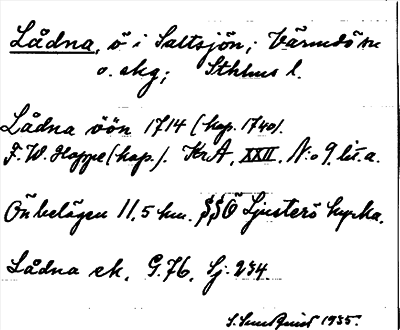 Lådna, ö i Saltsjön; Värmdö sn
o. skg; Sthlms l.
Lådna öön 1714 (kop. 1740).
F. W. Hoppe (kop.). KrA, XXII, N:o 9, lit. a.
Ön belägen 11,5 km. SSÖ Ljusterö kyrka.
Lådna sk. G. 76. Sj. 234
S. Sundquist 1935.